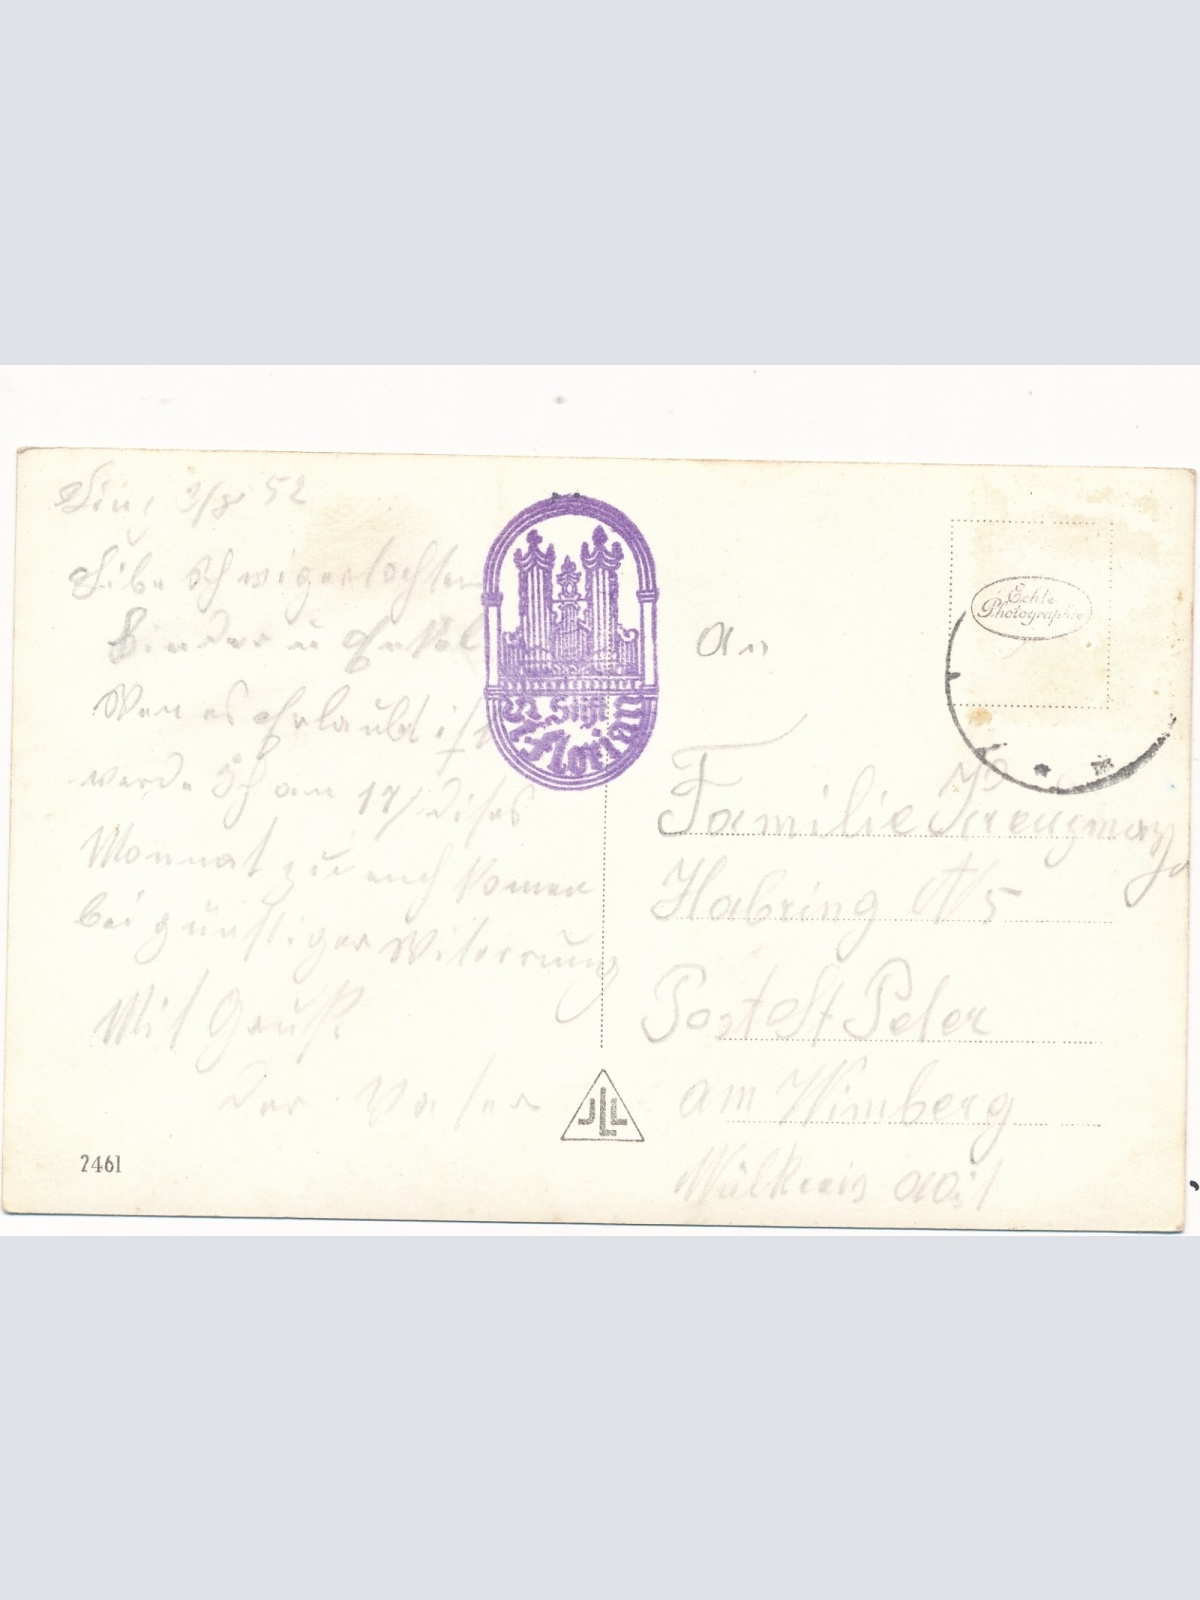 3/8 52
Libe Schwigertochter
Kinder u Enkel
Wen es Erlaubt ist
werde Ich am 17/ dises
Monnat zu euch komen
bei günstiger Witerrung
Mit Gruß
Der Vater
2461
Stift
St. Florian
JLL
Echte
Photographie
An
Familie
Habring No 5
Post St Peter
am Wimberg
Mülkreis